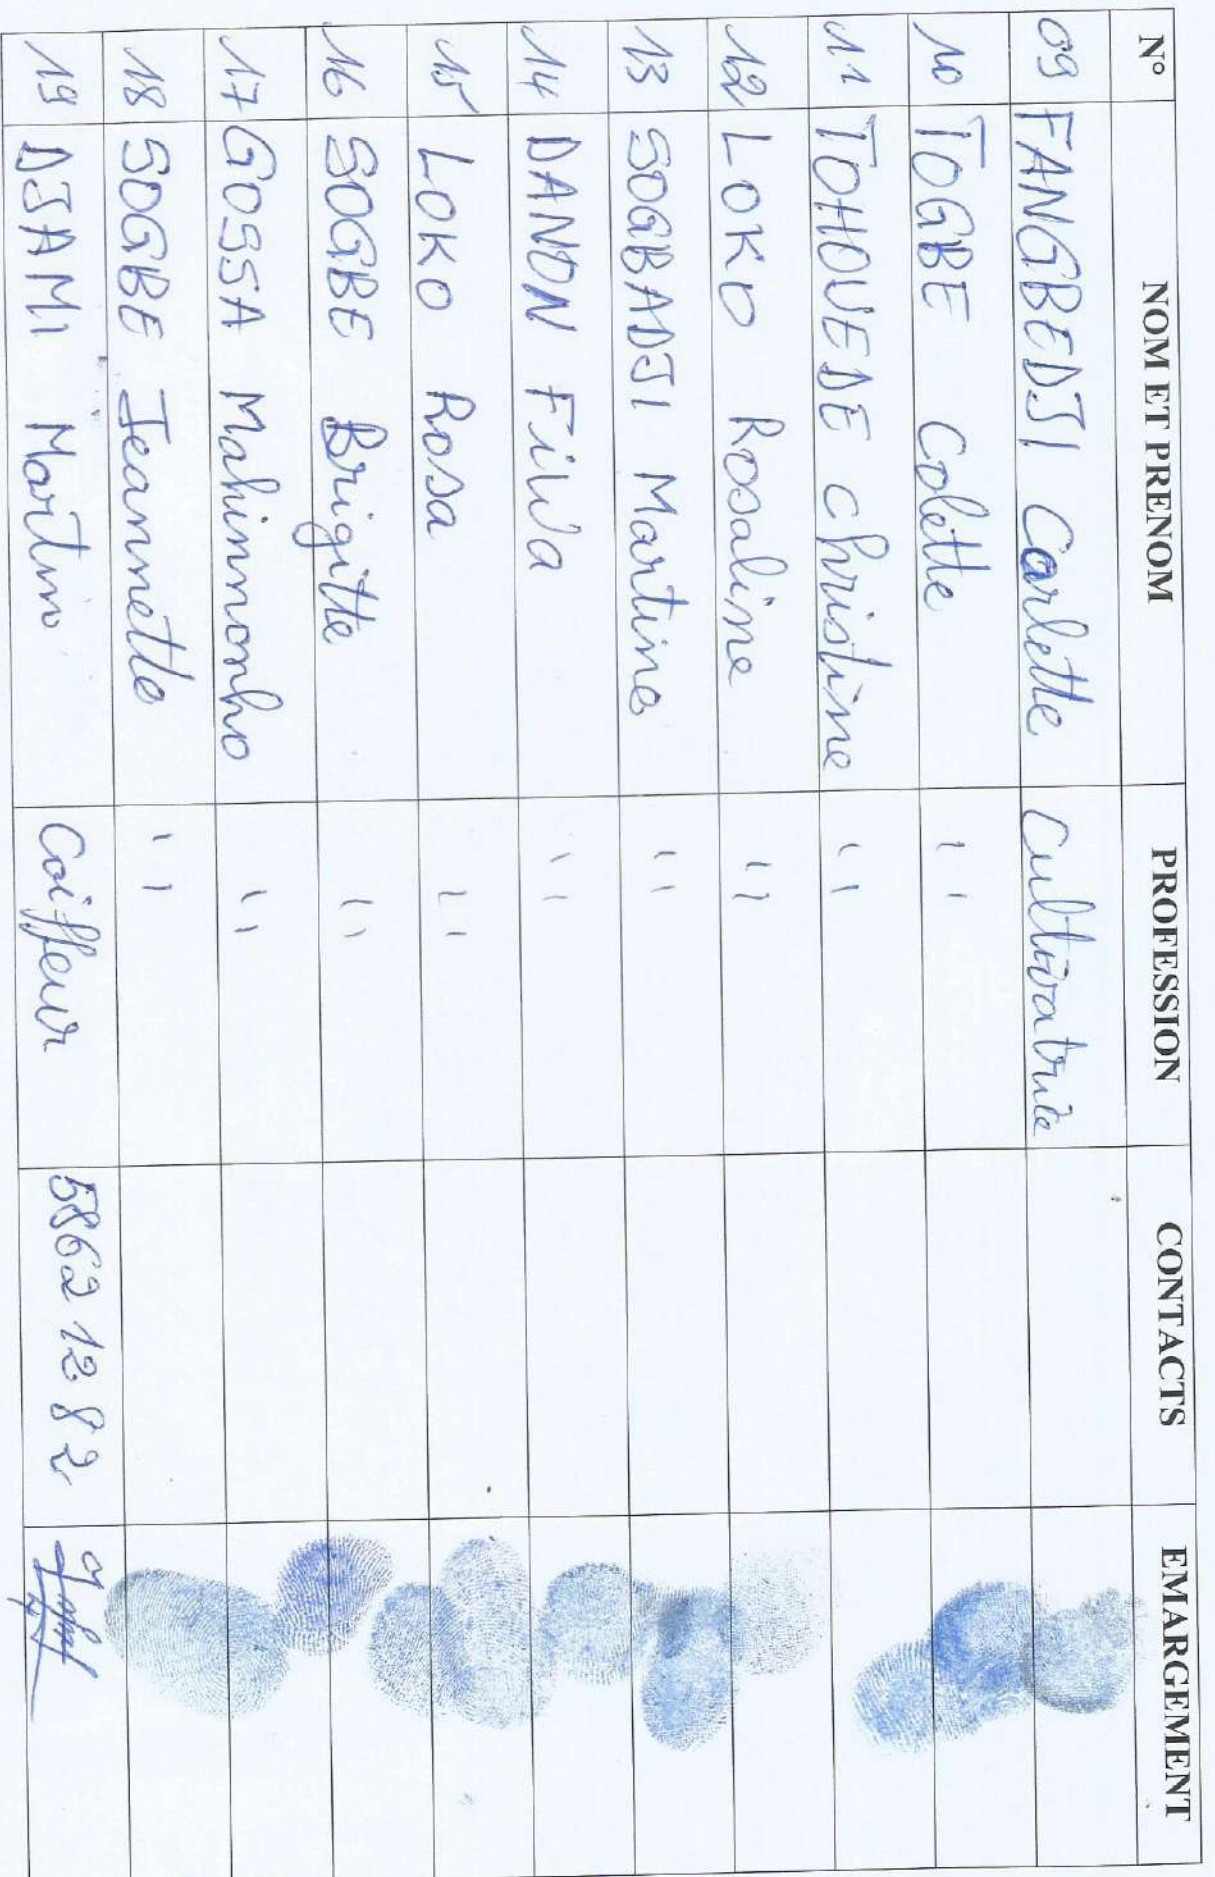 N° NOM ET PRENOM PROFESSION CONTACTS EMARGEMENT
09 FANGBEDJI Carlette Cultivatrice
10 TOGBE Colette "
11 TOHOUEDE Christine "
12 LOKO Rosaline "
13 SOGBADJI Martine "
14 DANON "
15 LOKO Rosa "
16 SOGBE Brigitte "
17 GOSSA Mahinnonho "
18 SOGBE Jeannette "
19 DJAMI Martin Coiffeur 5862 12 82